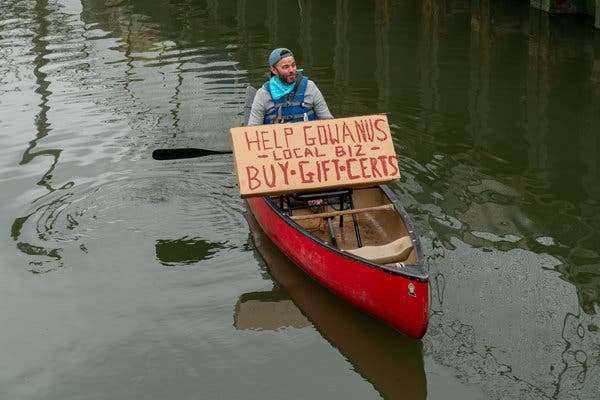 HELP GOWANUS
- LOCAL BIZ -
BUY · GIFT · CERTS